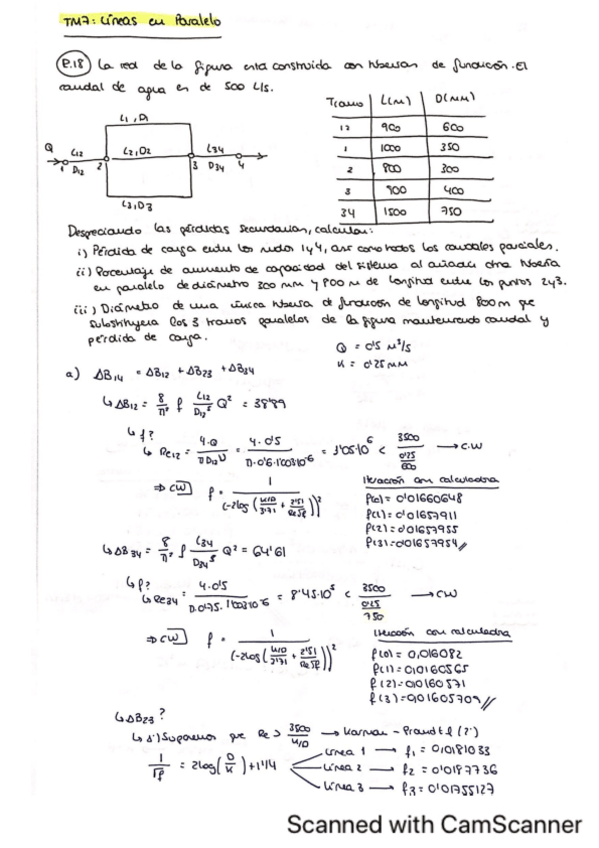 TM7: Líneas en Paralelo
P.18 La red de la figura esta construida con tuberias de fundición. El
caudal de agua es de 500 L/s.
Tramo L(m) D(mm)
12 900 600
1 1000 350
2 800 300
3 900 400
34 1500 750
L1, D1
Q L12 L2, D2 L34
1 D12 2 3 D34 4
L3, D3
Despreciando las pérdidas secundarias, calcular:
i) Pérdida de carga entre los nudos 1 y 4, así como todos los caudales parciales.
ii) Porcentaje de aumento de capacidad del sistema al añadir otra tubería
en paralelo de diámetro 300 mm y 900 m de longitud entre los puntos 2 y 3.
iii) Diámetro de una única tubería de fundición de longitud 800m que
substituyera los 3 tramos paralelos de la figura manteniendo caudal y
pérdida de carga.
Q = 0'5 m³/s
K = 0'25 mm
a) ΔB14 = ΔB12 + ΔB23 + ΔB34
↳ ΔB12 = 8/π² f L12/D12⁵ Q² = 38'89
↳ f?
↳ Re12 = 4·Q/πD12ν = 4·0'5/π·0'6·1'003·10⁻⁶ = 1'05·10⁶ < 3500/(0'25/600) → C.W
⇒ CW f = 1/(-2log(K/D/3'71 + 2'51/Re√f))²
Iteración con calculadora
f(0) = 0'01660648
f(1) = 0'01657911
f(2) = 0'01657955
f(3) = 0'01657954
↳ ΔB34 = 8/π² f L34/D34⁵ Q² = 64'61
↳ f?
↳ Re34 = 4·0'5/π·0'75·1'003·10⁻⁶ = 8'45·10⁵ < 3500/(0'25/750) → CW
⇒ CW f = 1/(-2log(K/D/3'71 + 2'51/Re√f))²
Iteración con calculadora
f(0) = 0,016082
f(1) = 0,0160565
f(2) = 0,0160571
f(3) = 0,01605709
↳ ΔB23?
↳ 1) Suponemos que Re > 3500/K/D → Karman - Prandtl (2º)
1/√f = 2log(D/K) + 1'14
Línea 1 → f1 = 0,0181033
Línea 2 → f2 = 0'0187736
Línea 3 → f3 = 0'01755127
Scanned with CamScanner